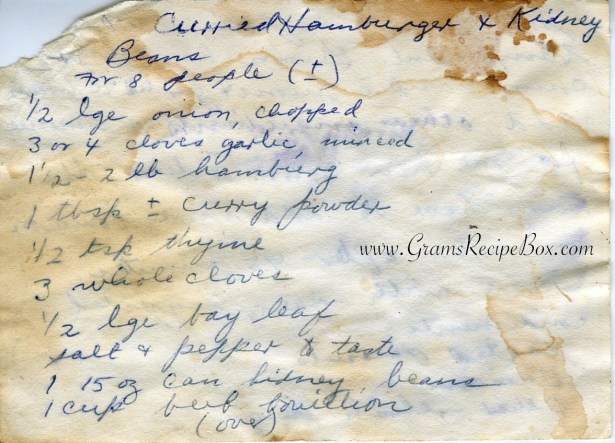 Curried Hamburger & Kidney
Beans
For 8 people (±)
1/2 lge onion, chopped
3 or 4 cloves garlic, minced
1 1/2 - 2 lb hamburg
1 tbsp ± curry powder
1/2 tsp thyme
www.GramsRecipeBox.com
3 whole cloves
1/2 lge bay leaf
salt & pepper to taste
1 15 oz can kidney beans
1 cup beef bouillion
(over)